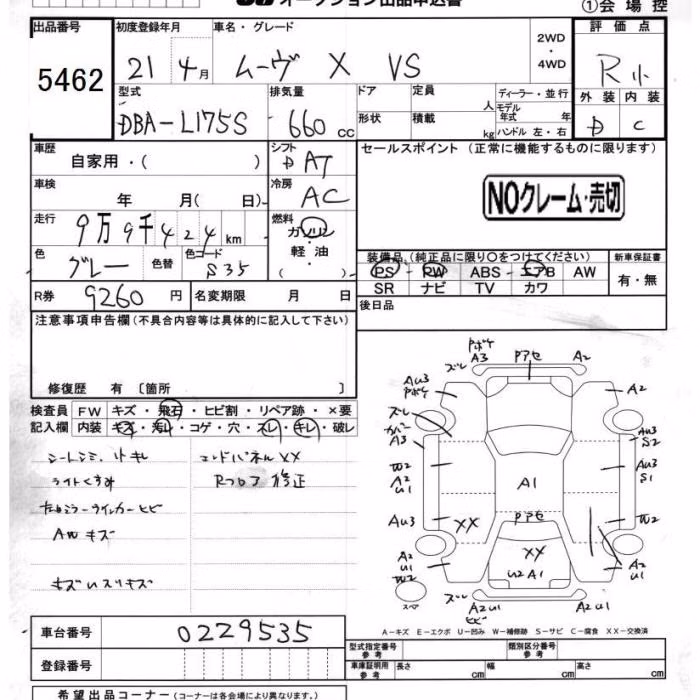 オークション出品申込書
①会場控
出品番号
5462
初度登録年月
21 4月
車名・グレード
ムーヴ X VS
2WD
・
4WD
評価点
R小
外装 内装
D C
型式
DBA-L175S
排気量
660 cc
ドア
形状
定員 人
積載 kg
ディーラー・並行
モデル年式 年
ハンドル 左・右
車歴
自家用・( )
シフト
DAT
セールスポイント (正常に機能するものに限ります)
NOクレーム・売切
車検
年 月( 日)
冷房
AC
走行
9万9千424km
燃料
ガソリン
・
軽油
・
( )
色
グレー
色替
色コード
S35
装備品 (純正品に限り○をつけてください)
PS PW ABS エアB AW
SR ナビ TV カワ
新車保証書
有・無
R券 9260円
名変期限 月 日
後日品
注意事項申告欄(不具合内容等は具体的に記入して下さい)
修復歴 有 〔箇所 〕
検査員 FW キズ・飛石・ヒビ割・リペア跡・×要
記入欄 内装 キズ・汚レ・コゲ・穴・スレ・キレ・破レ
シートシミ、小キレ
ライトくすみ
左ドアミラーウインカーヒビ
AWキズ
キズ、スリキズ
エンドパネルXX
Rフロア 修正
Pボケ
A3
ズレ
PアセA2
AU3
Pボケ
A2
ズレ
カバー
A3
AU3
S2
W2
A2
U1
A1
AU3
S1
AU3
XX
Pアセ
W2
A2
U1
W2
XX
U2 A1
A2
U1
スペア
A2U1
ヒビ
A2U1
A-キズ E-エクボ U-凹み W-補修跡 S-サビ C-腐食 XX-交換済
車台番号
0229535
登録番号
型式指定番号
参考
類別区分番号
参考
車庫証明用
参考
長さ cm
幅 cm
高さ cm
希望出品コーナー (コーナーは各会場により異なります。)